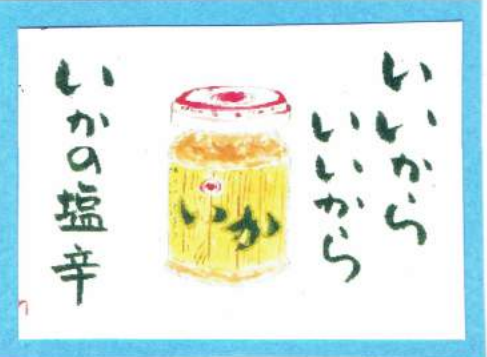 いいから
いいから
いか
いかの塩辛